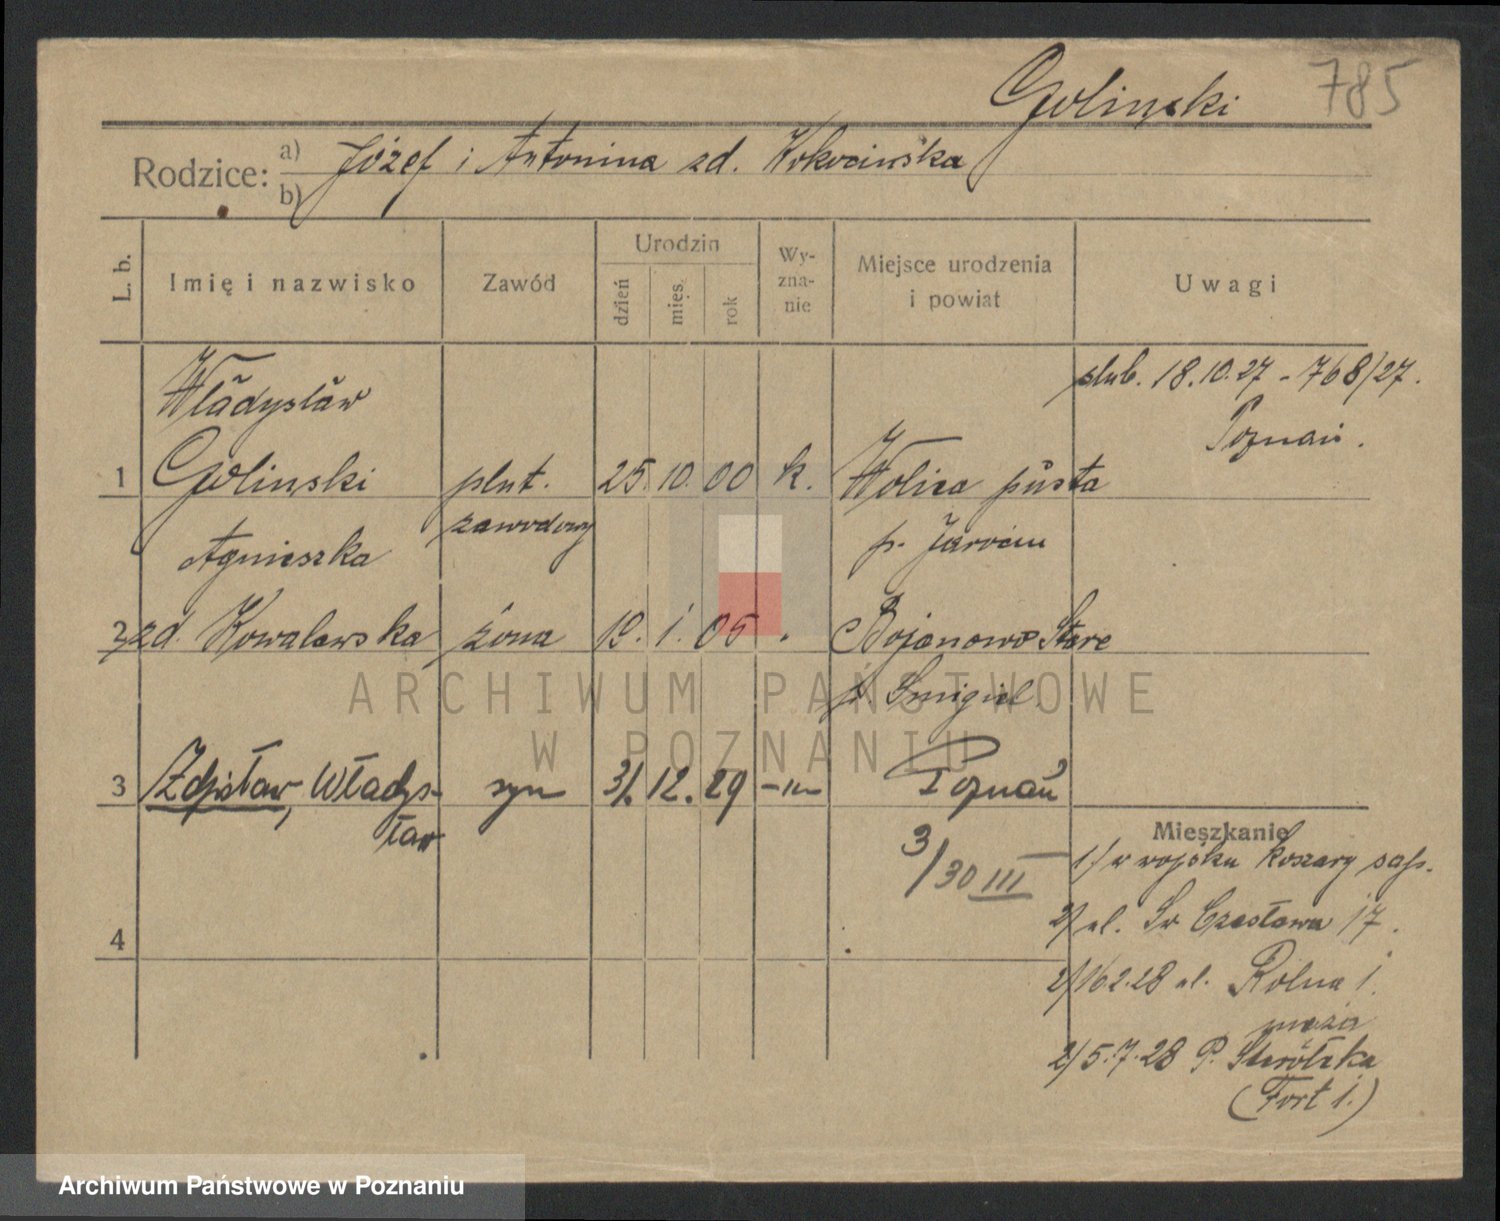 Golinski 785
Rodzice: a) Józef i Antonina zd. Wokocinska
b)
L. b. Imię i nazwisko Zawód Urodzin dzień mies. rok Wy-zna-nie Miejsce urodzenia i powiat Uwagi
ślub. 18.10.27 - 768/27.
Poznań.
Władysław
1 Golinski plut. 25. 10. 00 k. Wolica pusta
zawodowy p. Jarocin
Agnieszka
2 zd. Kowalewska żona 19. 1. 05 Bojanowo Stare
p. Smigiel.
3 Zdzisław, Władys- syn 31. 12. 29 -„- Poznań
ław
3/30 III
4
Mieszkanie
1/ w wojsku koszary sap.
2/ ul. Sw Czesława 17.
2/ 16.2.28 ul. Rolna 1.
2/ 5.7.28 P. Starołęka
(Fort 1.)
ARCHIWUM PAŃSTWOWE
W POZNANIU
Archiwum Państwowe w Poznaniu